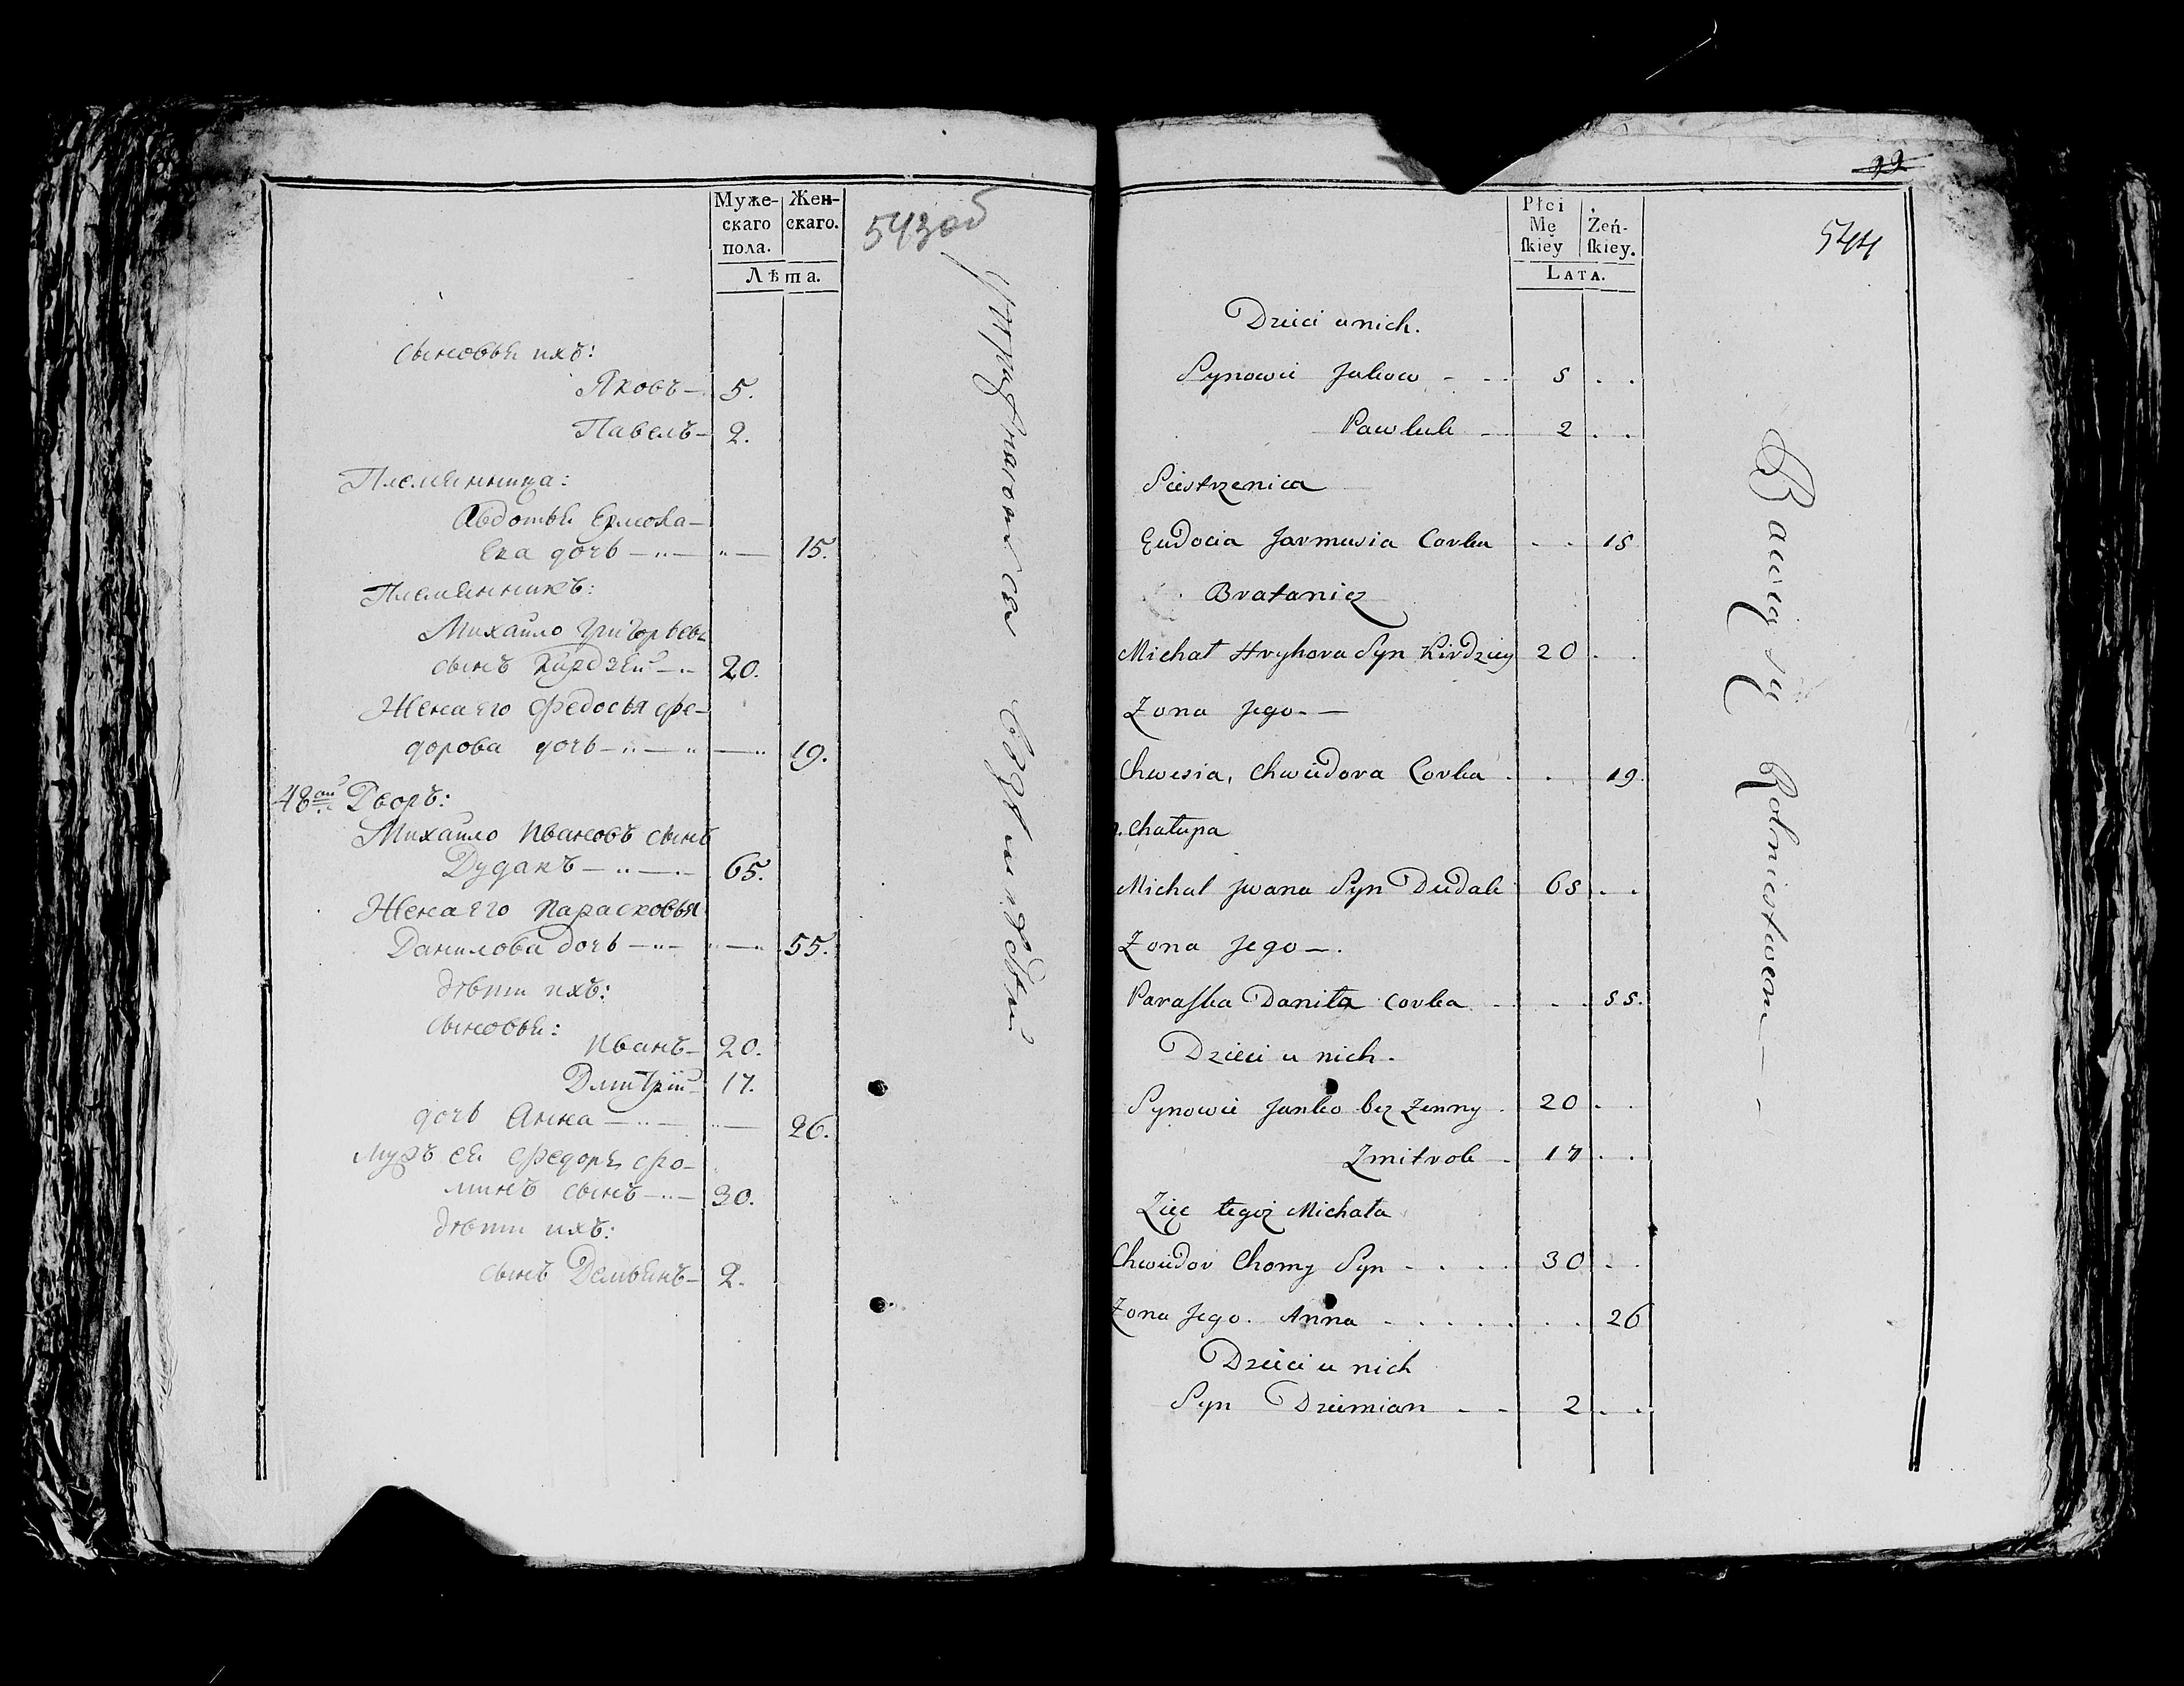 Муже-
скаго
пола.
Жен-
скаго.
Лѣта.
543об
сыновья ихъ:
Яковъ — 5.
Павелъ — 2.
Племянница:
Авдотья Ермола-
ева дочь — " — " — 15.
Племянникъ:
Михайло Григорьевъ
сынъ Кирдзей — 20.
Жена его Федосья Фе-
дорова дочь — " — " — 19.
48ой Дворъ:
Михайло Ивановъ сынъ
Дудакъ — " — 65.
Жена его Парасковья
Данилова дочь — " — " — " 55.
дѣти ихъ:
сыновья:
Иванъ — 20.
Дмитрій — 17.
дочь Анна — " — " — 26.
мужъ ея Федоръ Фо-
минъ сынъ — " — 30.
дѣти ихъ:
сынъ Демьянъ — 2.
Упражняются
99
544
Płci
Mę
ſkiey
Żeń-
ſkiey.
LATA.
Dzieci u nich.
Synowie Jakow - - 5 . .
Pawluk — 2 . .
Siestrzenica
Eudocia Jarmusia Corka . . 15
Bratanicz
Michał Hryhora Syn Kirdziey 20 . .
Zona Jego. —
Chwesia, Chwiedora Corka . . 19.
Chałupa
Michal Jwana Syn Dudak 65 . .
Zona Jego —.
Paraſka Daniła corka . . 55.
Dzieci u nich.
Synowie Janko bez Zenny . 20 . .
Zmitrok - 17 . .
Zięc tegoż Michała
Chwiedor Chomy Syn . . . . 30 . .
Zona Jego. Anna . . . . . . . 26
Dzieci u nich
Syn Dziemian - - 2 . .
Bawią się Rolnictwem —